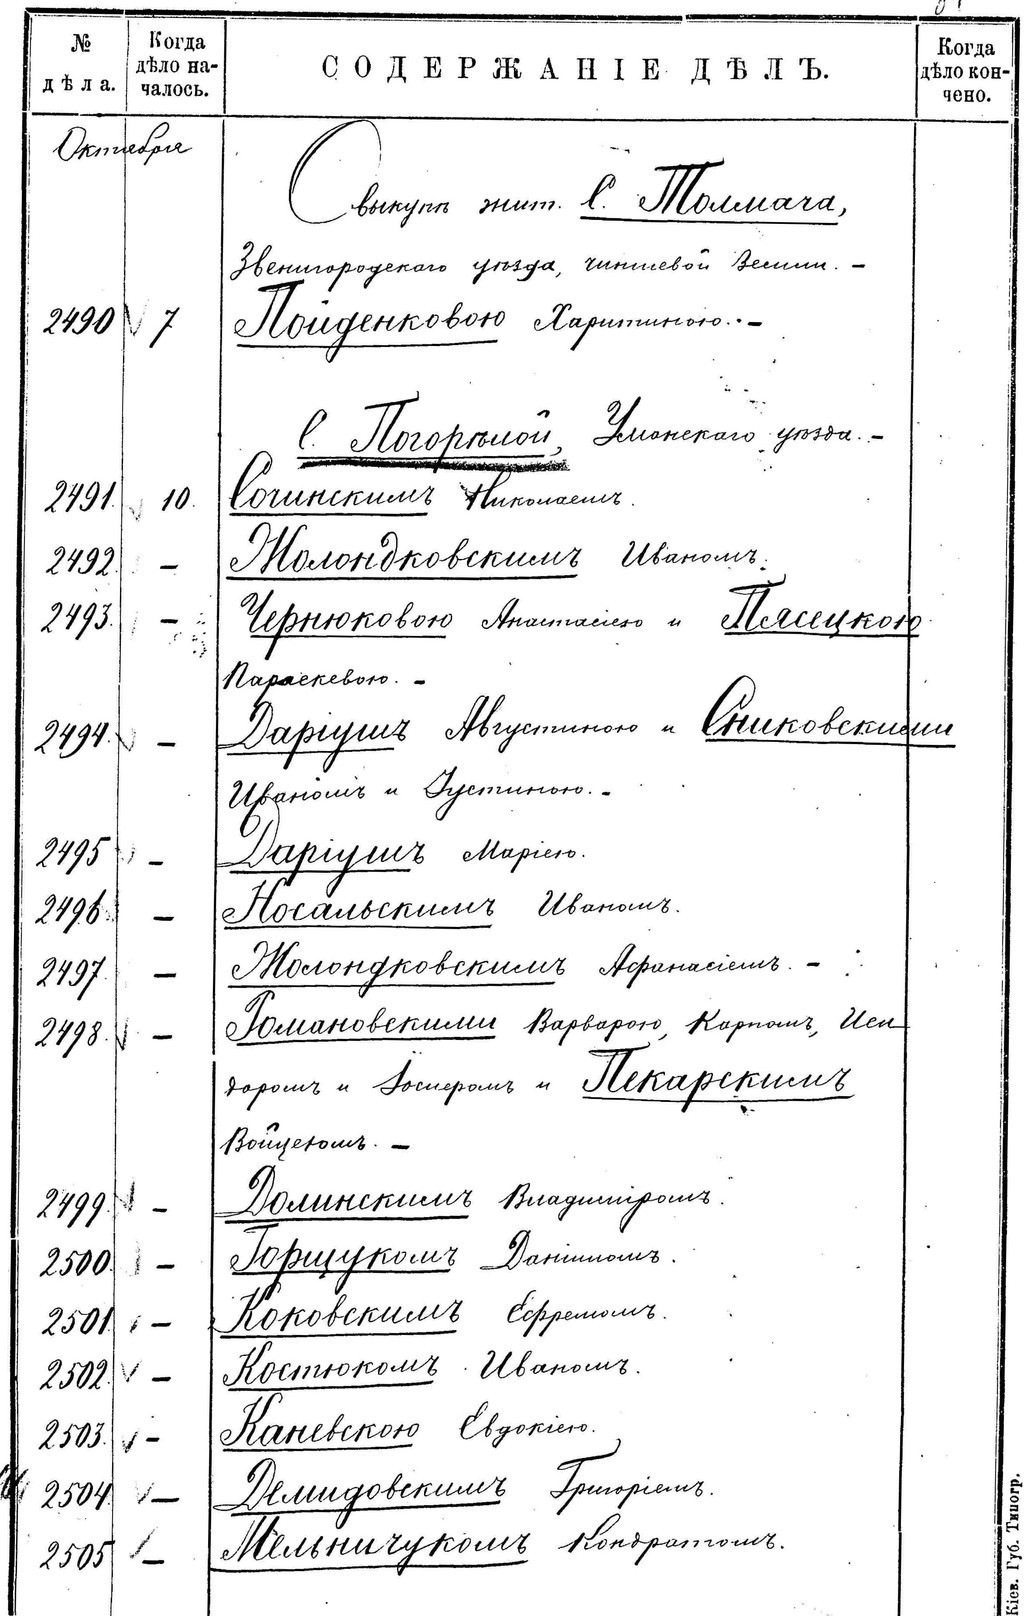 № дѣла.
Когда дѣло началось.
СОДЕРЖАНІЕ ДѢЛЪ.
Когда дѣло кончено.
Октября
О выкупѣ жит. С. Толмача,
Звенигородскаго уѣзда, чиншевой Земли. –
2490 7 Пойденковою Харитиною. –
С. Погорѣлой, Уманскаго уѣзда. –
2491. 10. Сочинскимъ Николаемъ.
2492. – Молондковскимъ Иваномъ.
2493. – Чернюковою Анастасіею и Пясецкою
Параскевою. –
2494. – Даріушъ Августиною и Сниковскими
Иваномъ и Густиною. –
2495 – Даріушъ Маріею.
2496. – Носальскимъ Иваномъ.
2497. – Молондковскимъ Афанасіемъ. –
2498. – Романовскими Варварою, Карпомъ, Иси
доромъ и Госперомъ и Пекарскимъ
Войцехомъ. –
2499. – Долинскимъ Владиміромъ.
2500. – Горщукомъ Даніиломъ.
2501. – Коковскимъ Ефремомъ.
2502. – Костюкомъ Иваномъ.
2503. – Каневскою Евдокіею.
2504. – Демидовскимъ Григоріемъ.
2505 – Мельничукомъ Кондратомъ.
Кіев. Губ. Типогр.